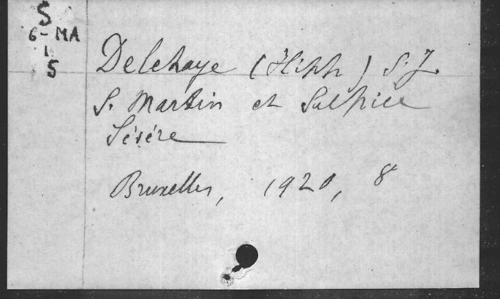 S
6-MA
1
5
Delehaye (Hipp) S.J.
S. Martin et Sulpice
Sévère
Bruxelles, 1920, 8